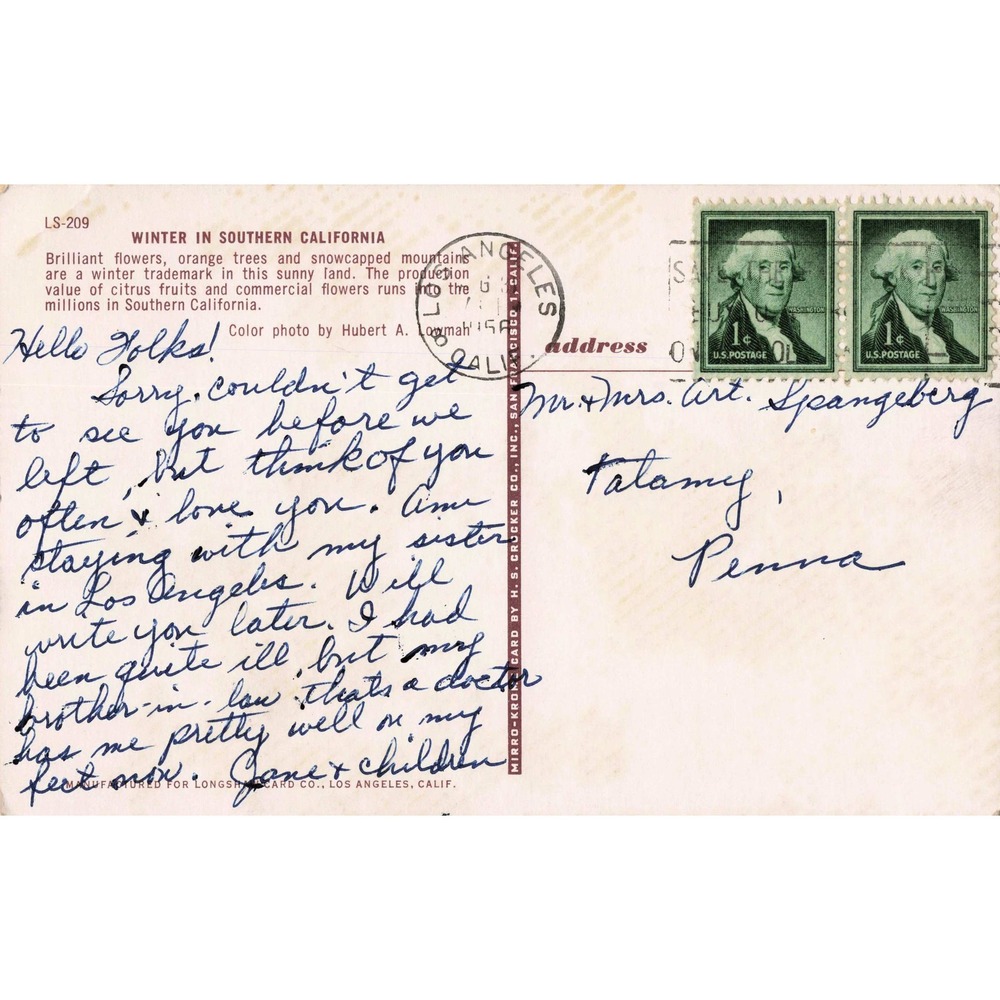 LS-209
WINTER IN SOUTHERN CALIFORNIA
Brilliant flowers, orange trees and snowcapped mountains
are a winter trademark in this sunny land. The production
value of citrus fruits and commercial flowers runs into the
millions in Southern California.
Color photo by Hubert A. Lowman
Hello Folks!
Sorry couldn't get
to see you before we
left, but think of you
often & love you. Am
staying with my sister
in Los Angeles. Will
write you later. I had
been quite ill, but my
brother-in-law thats a doctor
has me pretty well on my
feet now. Jane & children
MANUFACTURED FOR LONGSHAW CARD CO., LOS ANGELES, CALIF.
MIRRO-KROME CARD BY H. S. CROCKER CO., INC., SAN FRANCISCO 1, CALIF.
LOS ANGELES
CALIF.
1¢
U.S. POSTAGE
WASHINGTON
1¢
U.S. POSTAGE
WASHINGTON
address
Mr. & Mrs. Art. Spangeberg
Tatamy,
Penna